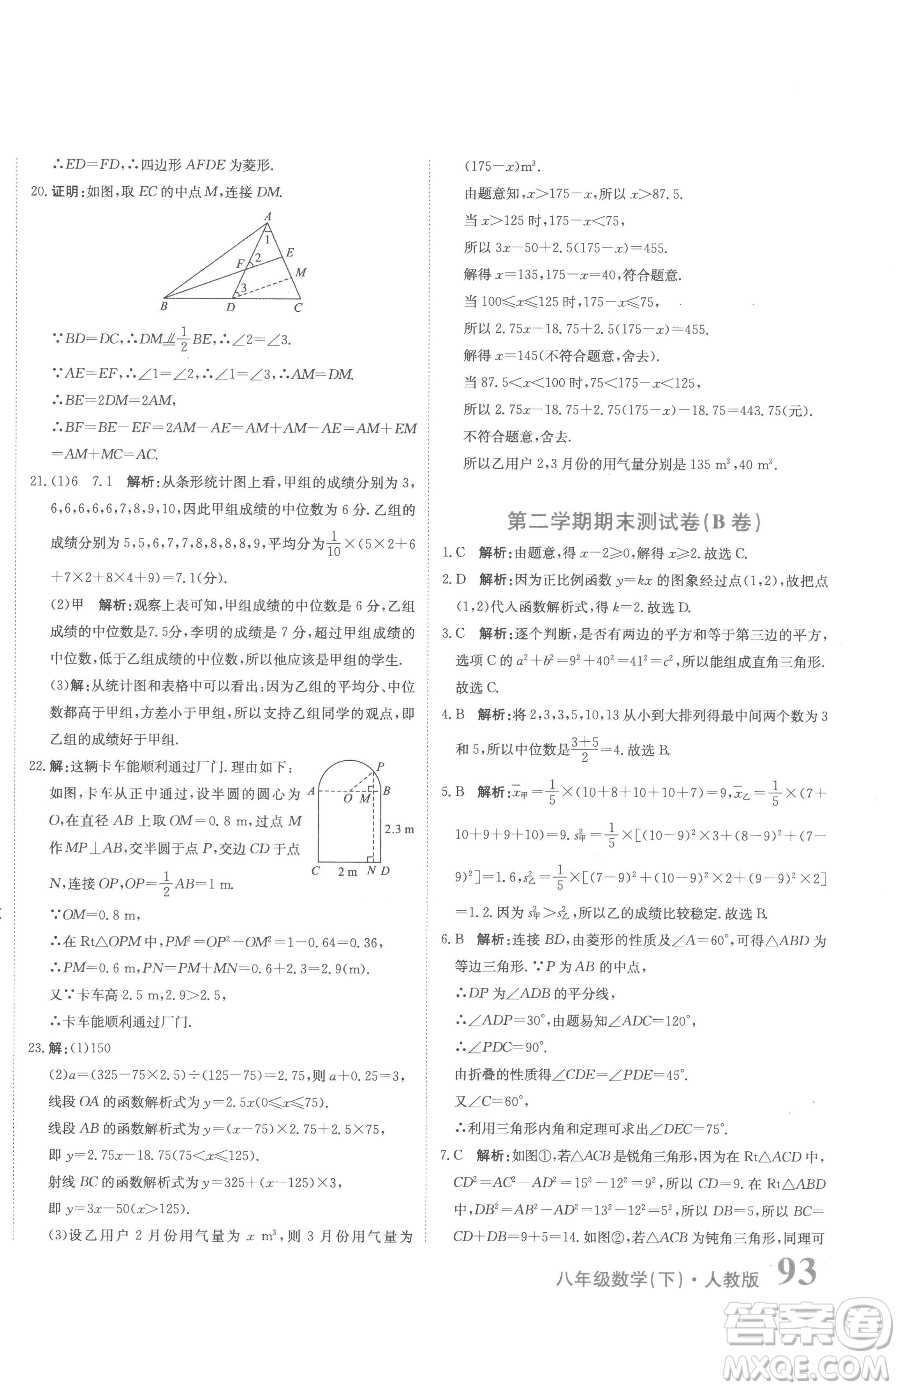 ∴ED=FD,∴四边形 AFDE 为菱形.
20. 证明:如图,取 EC 的中点 M,连接 DM.
A
1
F
2
E
M
3
B
D
C
∵BD=DC,∴DM⫽1/2BE,∴∠2=∠3.
∵AE=EF,∴∠1=∠2,∴∠1=∠3,∴AM=DM.
∴BE=2DM=2AM,
∴BF=BE-EF=2AM-EF=2AM-AE=AM+EM
=AM+MC=AC.
21. (1)6 7.1 解析:从条形统计图上看,甲组的成绩分别为 3,
6,6,6,6,6,7,8,9,10,因此甲组中位数为 6 分.乙组的
成绩分别为 5,5,6,7,7,8,8,8,8,9,平均分为1/10×(5×2+6
+7×2+8×4+9)=7.1(分).
(2)甲 解析:观察上表可知,甲组成绩的中位数是 6 分,乙组
成绩的中位数是7.5分,李明的成绩是 7 分,超过甲组成绩的
中位数,低于乙组成绩的中位数,所以李明是甲组的学生.
(3)解:从统计图和表格中可以看出:乙组的平均分、中位
数都高于甲组,方差小于甲组,所以支持乙组同学的观点,即
乙组的成绩好于甲组.
22. 解:这辆卡车能顺利通过厂门.理由如下:
如图,卡车从正中通过,设半圆的圆心为
O,在直径 AB 上取 OM=0.8 m,过点 M
作 MP⊥AB,交半圆于点 P,交 CD 于点
N,连接 OP,OP=1/2AB=1 m.
P
A
O
M
B
2.3 m
C
2 m
N
D
∵OM=0.8 m,
∴在 Rt△OPM 中,PM²=OP²-OM²=1-0.64=0.36,
∴PM=0.6 m,PN=PM+MN=0.6+2.3=2.9(m).
又∵卡车高 2.5 m,2.9>2.5,
∴卡车能顺利通过厂门.
23. 解:(1)150
(2)a=(325-75×2.5)÷(125-75)=2.75,则 a+0.25=3,
线段 OA 的函数解析式为 y=2.5x(0≤x≤75),
线段 AB 的函数解析式为 y=(x-75)×2.75+2.5×75,
即 y=2.75x-18.75(75<x≤125),
射线 BC 的函数解析式为 y=325+(x-125)×3,
即 y=3x-50(x>125).
(3)设乙用户 2 月份用气量为 x m³,则 3 月份用气量为
(175-x)m³.
由题意知,x>175-x,所以 x>87.5.
当 x>125 时,175-x<75,
所以 3x-50+2.5(175-x)=455.
解得 x=135,175-x=40,符合题意.
当 100≤x≤125 时,175-x≤75,
所以 2.75x-18.75+2.5(175-x)=455.
解得 x=145(不符合题意,舍去).
当 87.5<x<100 时,75<175-x<125,
所以 2.75x-18.75+2.75(175-x)-18.75=443.75(元).
不符合题意,舍去.
所以乙用户 2,3 月份的用气量分别是 135 m³,40 m³.
第二学期期末测试卷(B 卷)
1. C 解析:由题意,得 x-2≥0,解得 x≥2.故选 C.
2. D 解析:因为正比例函数 y=kx 的图象经过点(1,2),把点
(1,2)代入函数解析式,得 k=2.故选 D.
3. C 解析:逐个判断,是否有两边的平方和等于第三边的平方,
选项 C 的 a²+b²=9²+40²=41²=c²,所以能组成直角三角形.
故选 C.
4. B 解析:将 2,3,3,5,10,13 从小到大排列得最中间两个数为 3
和 5,所以中位数是(3+5)/2=4.故选 B.
5. B 解析:x̄甲=1/5×(10+8+10+10+7)=9,x̄乙=1/5×(7+
10+9+9+10)=9.s²甲=1/5×[(10-9)²×3+(8-9)²+(7-
9)²]=1.6,s²乙=1/5×[(7-9)²+(10-9)²×2+(9-9)²×2]
=1.2.因为 s²甲>s²乙,所以乙的成绩比较稳定.故选 B.
6. B 解析:连接 BD,由菱形的性质及∠A=60°,可得△ABD 为
等边三角形.∵P 为 AB 的中点,
∴DP 为∠ADB 的平分线,
∴∠ADP=30°,由题易知∠ADC=120°,
∴∠PDC=90°.
由折叠的性质得∠CDE=∠PDE=45°.
又∠C=60°,
∴利用三角形内角和定理可求出∠DEC=75°.
7. C 解析:如图①,若△ACB是锐角三角形,在 Rt△ACD 中,
CD²=AC²-AD²=15²-12²=9²,所以 CD=9.在 Rt△ABD
中,DB²=AB²-AD²=13²-12²=5²,所以 DB=5,所以 BC=
CD+DB=9+5=14.如图②,若△ACB 为钝角三角形,同理可
八年级数学(下)·人教版 93
答案圈
MXQE.COM